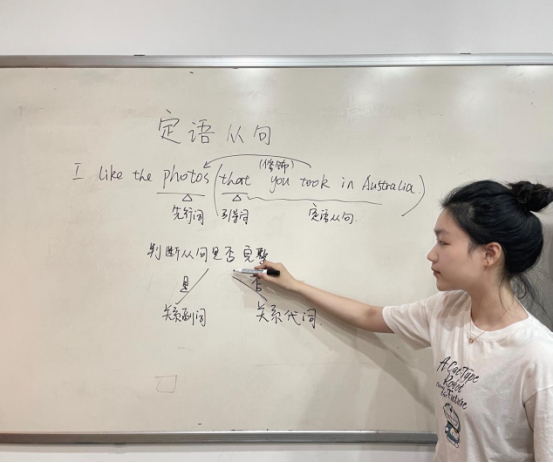 定语从句
(修饰)
I like the photos (that you took in Australia)
先行词 引导词 定语从句.
判断从句是否完整
是 否
关系副词 关系代词.
A CacType
Robot
From the
Future